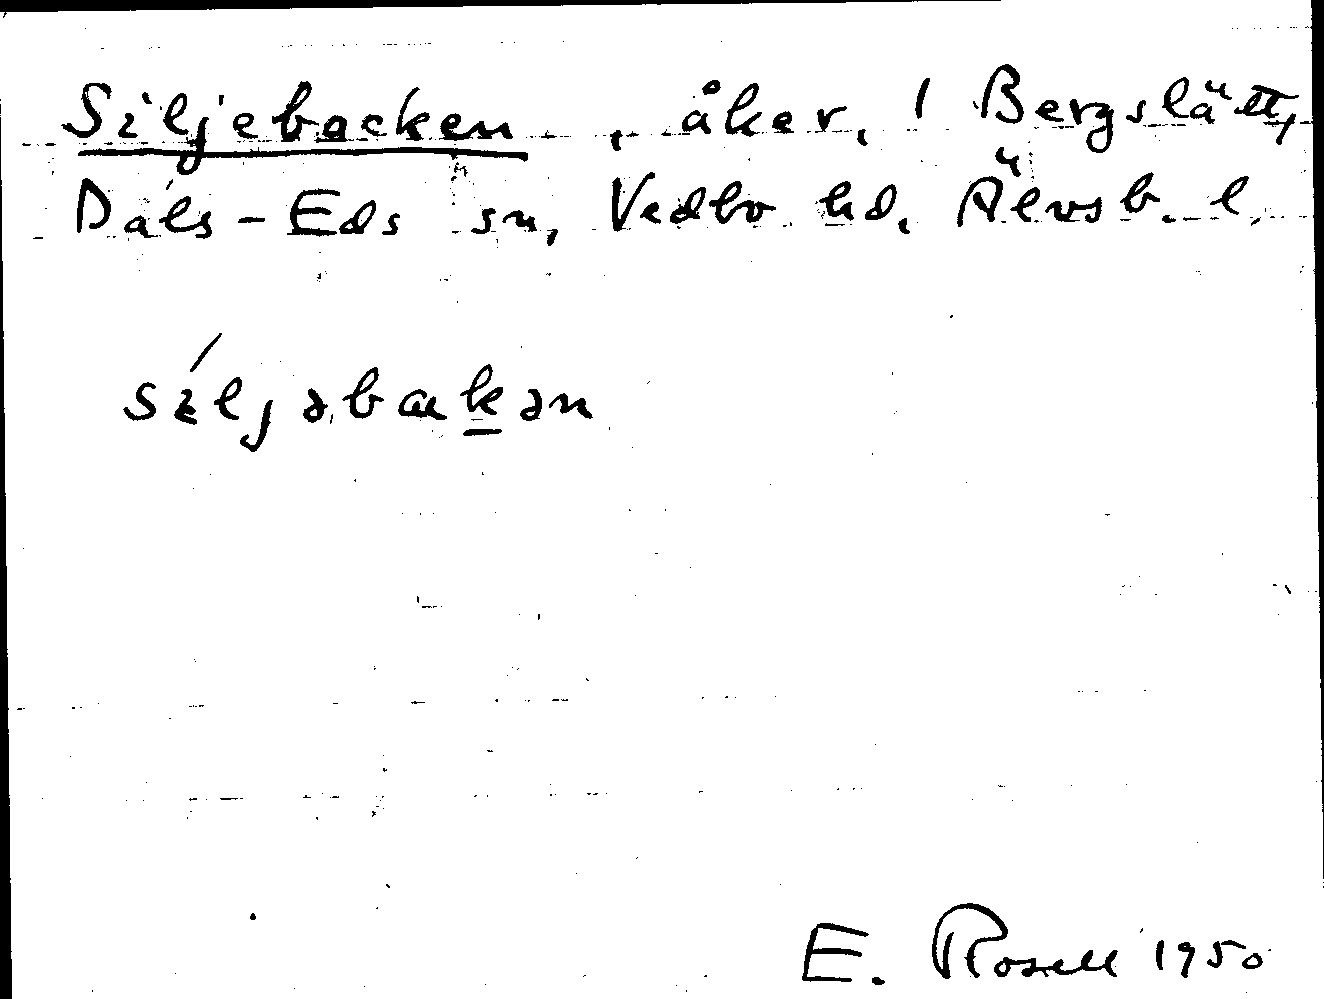 Siljebacken, åker, 1 Bergslätt,
Dals-Eds sn, Vedbo hd. Älvsb. l.
síljəbakən
E. Rosell 1950